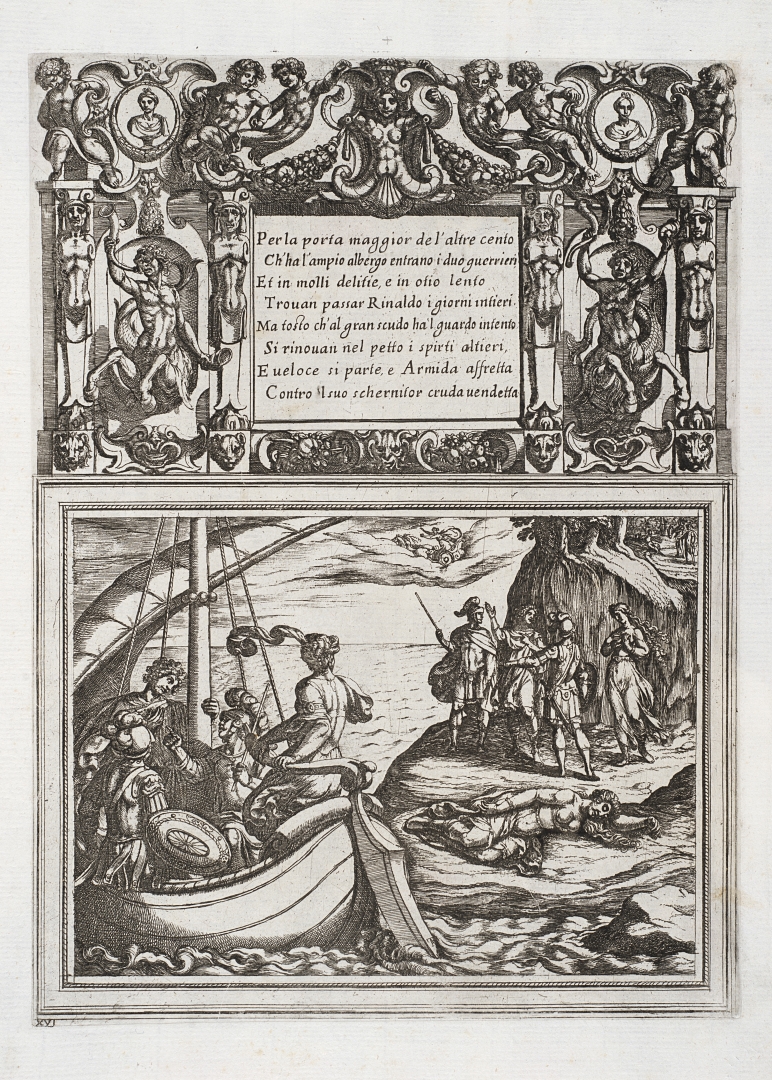 Per la porta maggior de l'altre cento
Ch'ha l'ampio albergo entrano i duo guerrieri
Et in molli delitie, e in otio lento
Trouan passar Rinaldo i giorni intieri.
Ma tosto ch'al gran scudo ha'l guardo intento
Si rinouan nel petto i spirti altieri,
E ueloce si parte, e Armida affretta
Contro 'l suo schernitor cruda uendetta
XVI